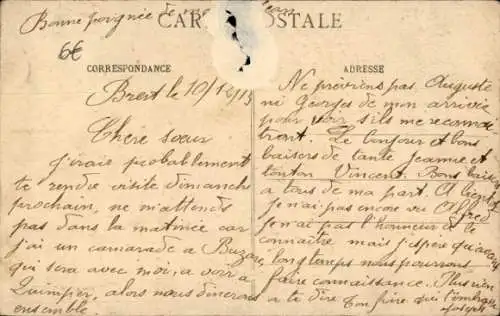 Bonne poignée de main Jean
CARTE POSTALE
6€
CORRESPONDANCE
Brest le 10/12/15
Chère sœur
j'irais probablement
te rendre visite dimanche
prochain, ne m'attends
pas dans la matinée car
j'ai un camarade a
qui sera avec moi, a voir a
Quimper, alors nous dinerons
ensemble
ADRESSE
Ne préviens pas Auguste
ni Georges de mon arrivée
pour voir s'ils me reconnai
tront. Le bonjour et bons
baisers de tante Jeanne et
tonton Vincent. Bons baisers
a tous de ma part. A
je n'ai pas encore vu Alfred
je n'ai pas l'honneur de te
connaitre mais j'espère qu'avant
longtemps nous pourrons
faire connaissance. Plus rien
a te dire Ton frère qui t'embrasse
Joseph